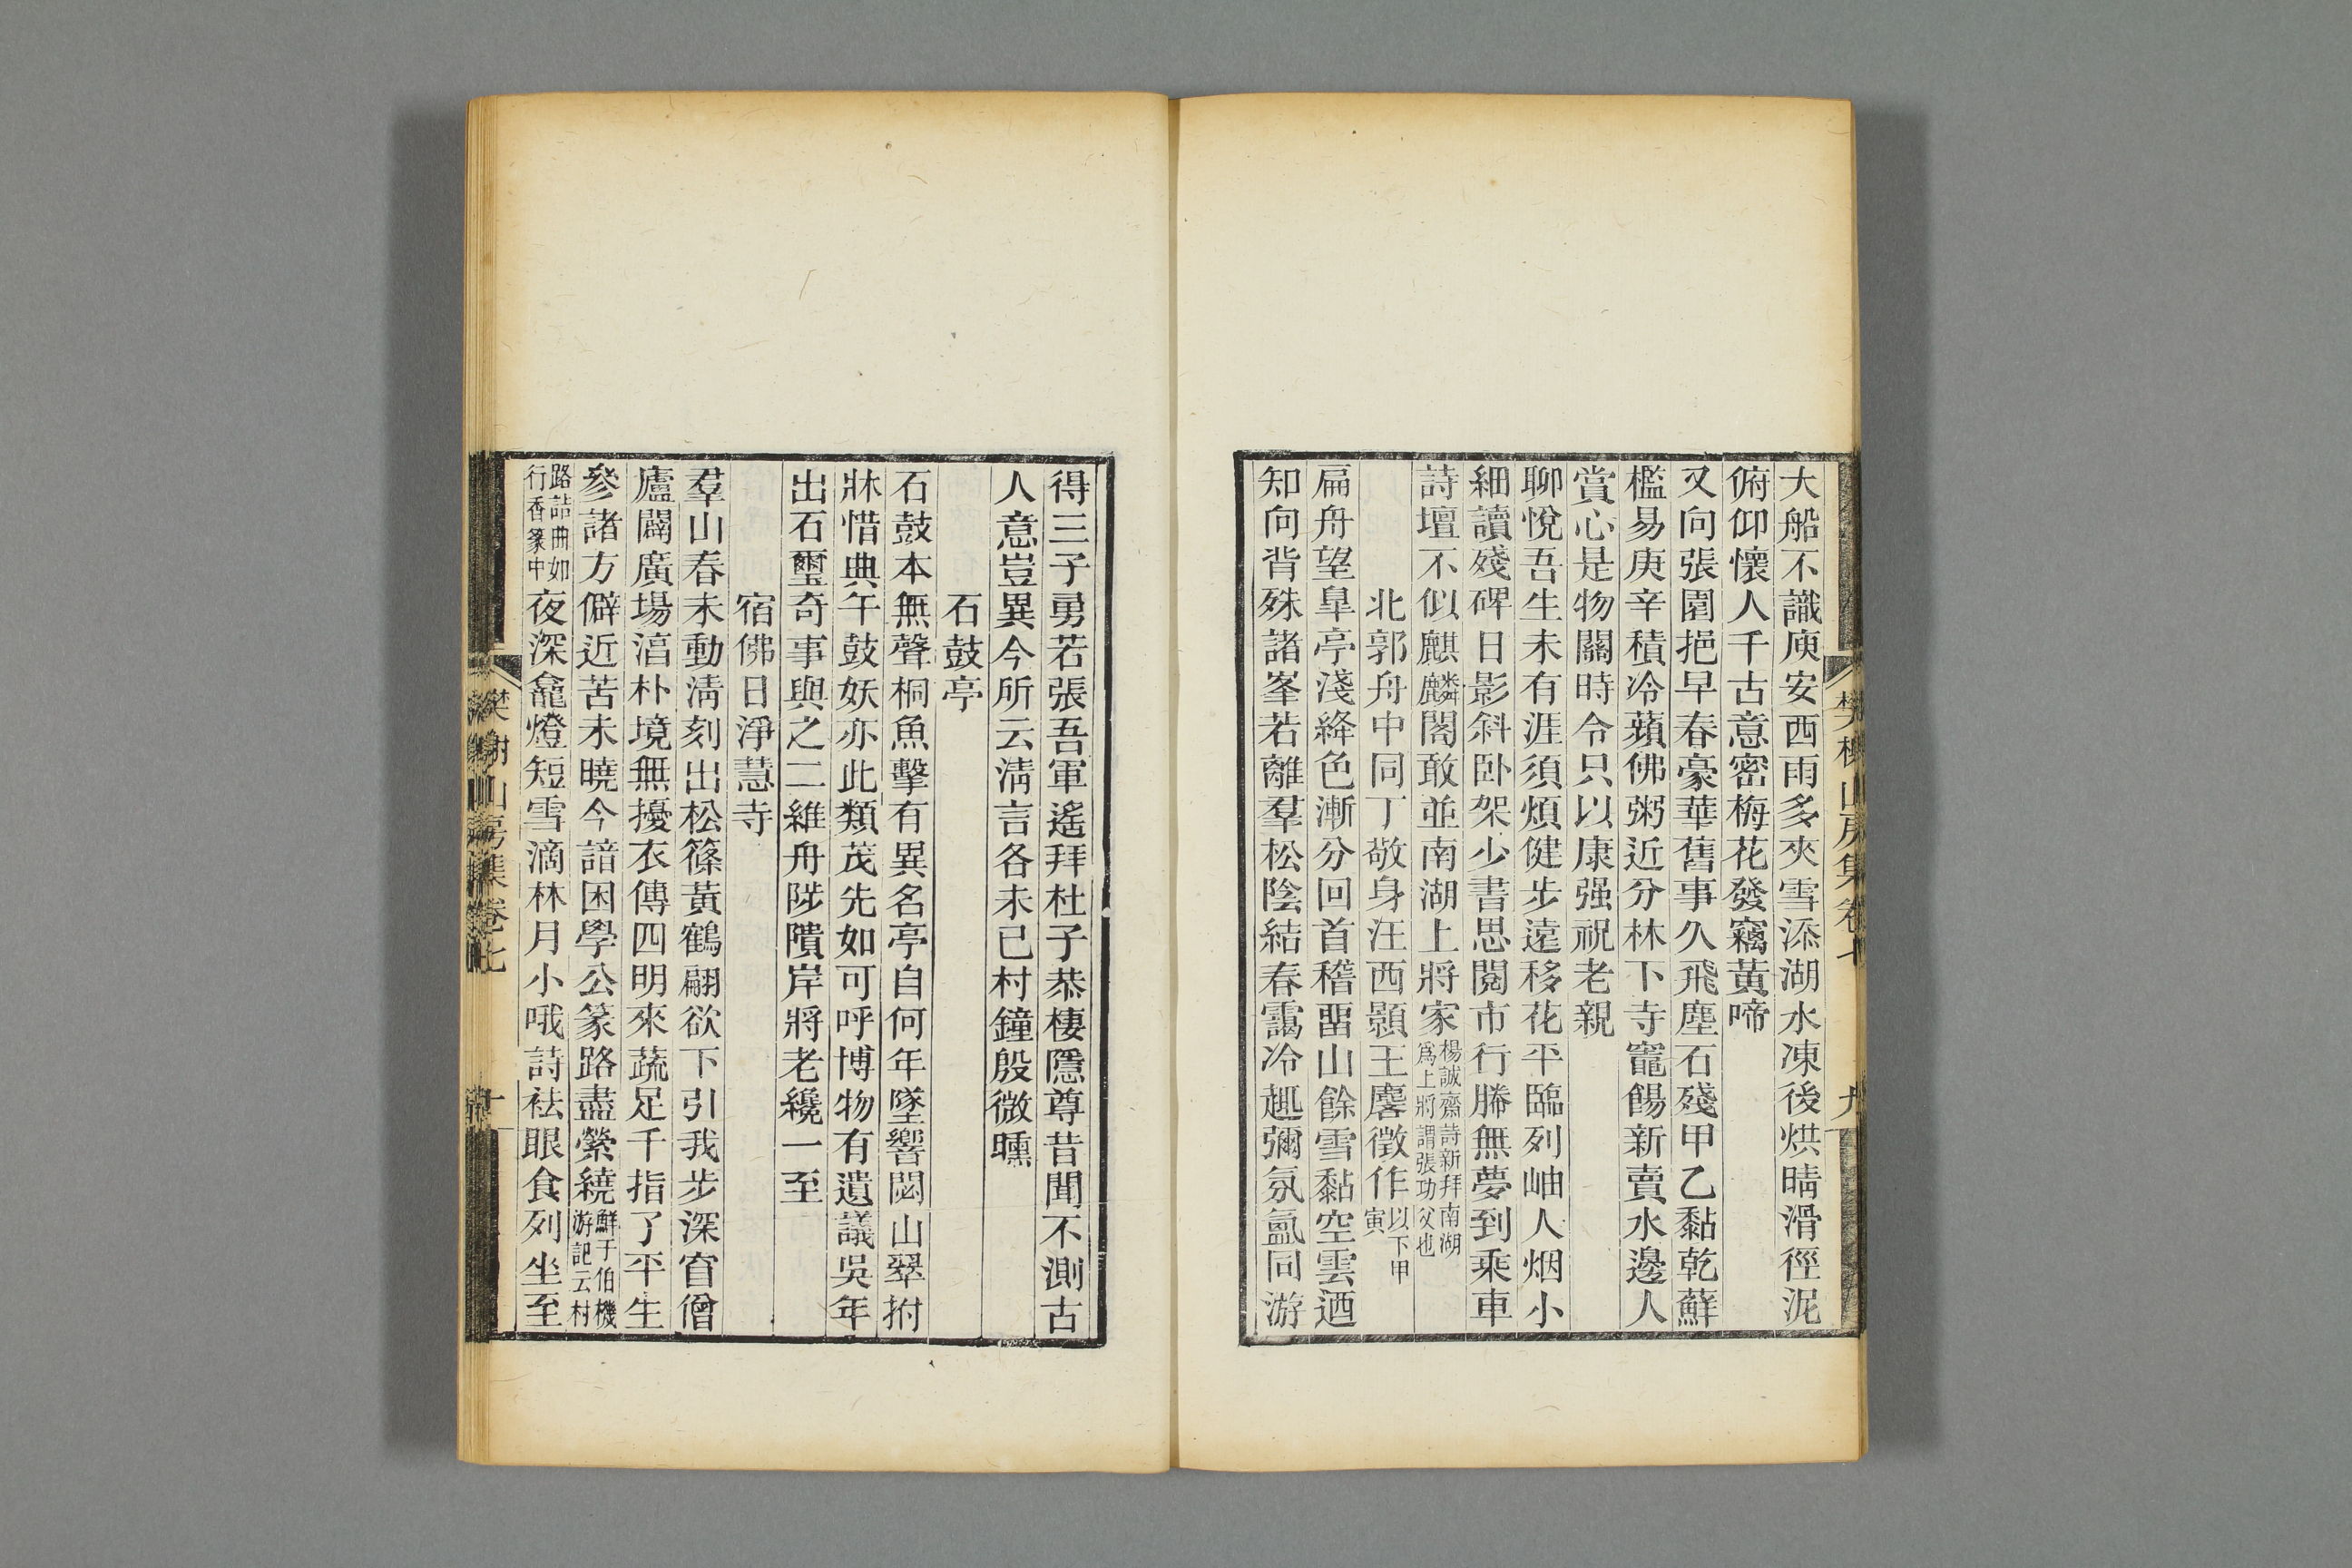 大船不識庾安西雨多夾雪添湖水凍後烘晴滑徑泥
俯仰懷人千古意密梅花發竊黃啼
又向張園挹早春豪華舊事久飛塵石殘甲乙黏乾蘚
檻易庚辛積冷蘋佛粥近分林下寺竈餳新賣水邊人
賞心是物關時令只以康强祝老親
聊悅吾生未有涯須煩健步遠移花平臨列岫人烟小
細讀殘碑日影斜卧架少書思閱市行縢無夢到乘車
詩壇不似麒麟閣敢並南湖上將家楊誠齋詩新拜南湖
爲上將謂張功父也
北郭舟中同丁敬身汪西顥王麐徵作以下甲
寅
扁舟望臯亭淺絳色漸分回首稽畱山餘雪黏空雲迺
知向背殊諸峯若離羣松陰結春靄冷趣彌氛氳同游
樊榭山房集卷七
九
得三子勇若張吾軍遙拜杜子恭棲隱尊昔聞不測古
人意豈異今所云清言各未已村鐘殷微曛
石鼓亭
石鼓本無聲桐魚擊有異名亭自何年墜響閟山翠拊
牀惜典午鼓妖亦此類茂先如可呼博物有遺議吳年
出石璽奇事與之二維舟陟隤岸將老纔一至
宿佛日淨慧寺
羣山春未動清刻出松篠黃鶴翩欲下引我步深窅僧
廬闢廣場㳷朴境無擾衣傳四明來蔬足千指了平生
參諸方僻近苦未曉今諳困學公篆路盡縈繞鮮于伯機
游記云村
路詰曲如
行香篆中夜深龕燈短雪滴林月小哦詩袪眼食列坐至
樊榭山房集卷七
十